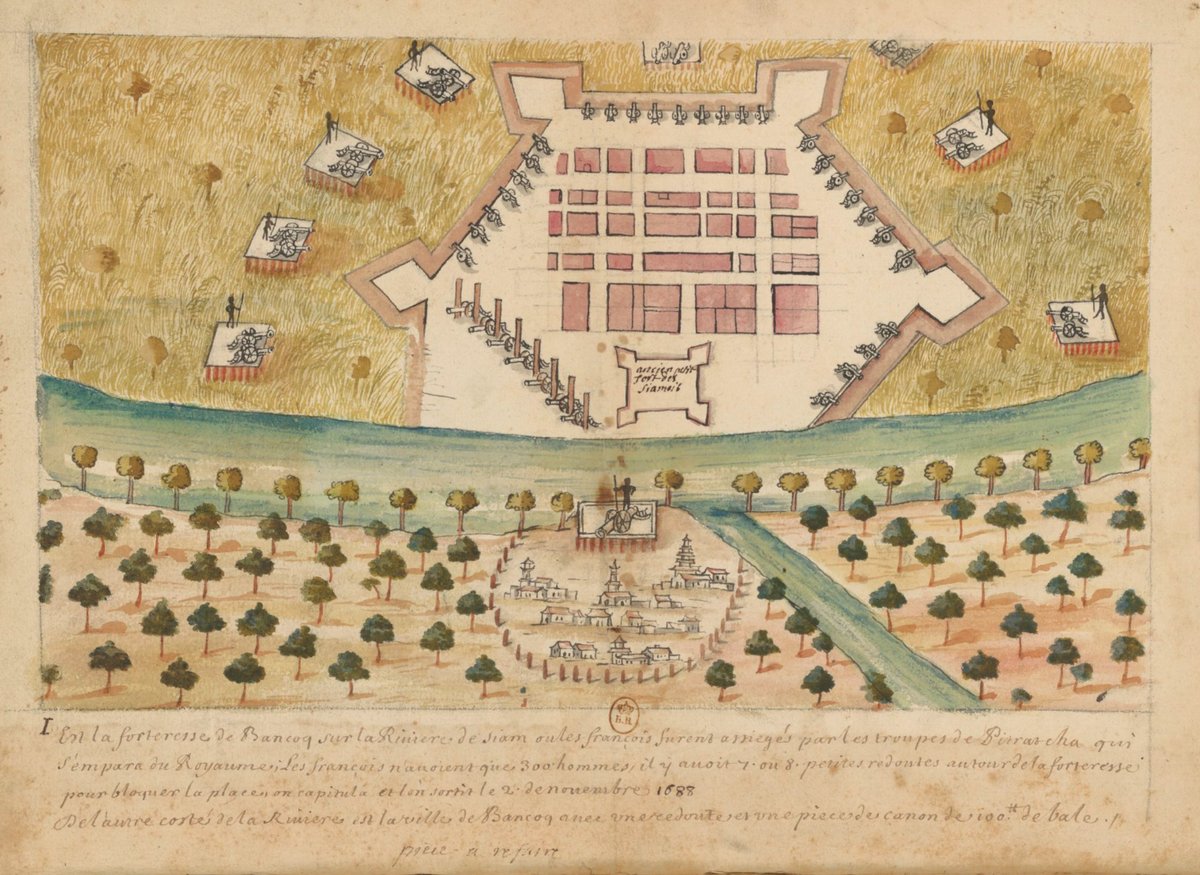 ancien petit
fort des
siamois
B.R
I
Est la forteresse de Bancoq sur la Riviere de siam ou les françois furent assiegés par les troupes de Pitratcha qui
s'empara du Royaume; Les françois n'avoient que 300 hommes, il y avoit 7. ou 8. petites redoutes autour de la forteresse
pour bloquer la place, on capitula et l'on sortit le 2. de novembre 1688
De l'autre costé de la Riviere est la ville de Bancoq avec une redoute et une piece de canon de 100.tt de bale.
piece a refaire